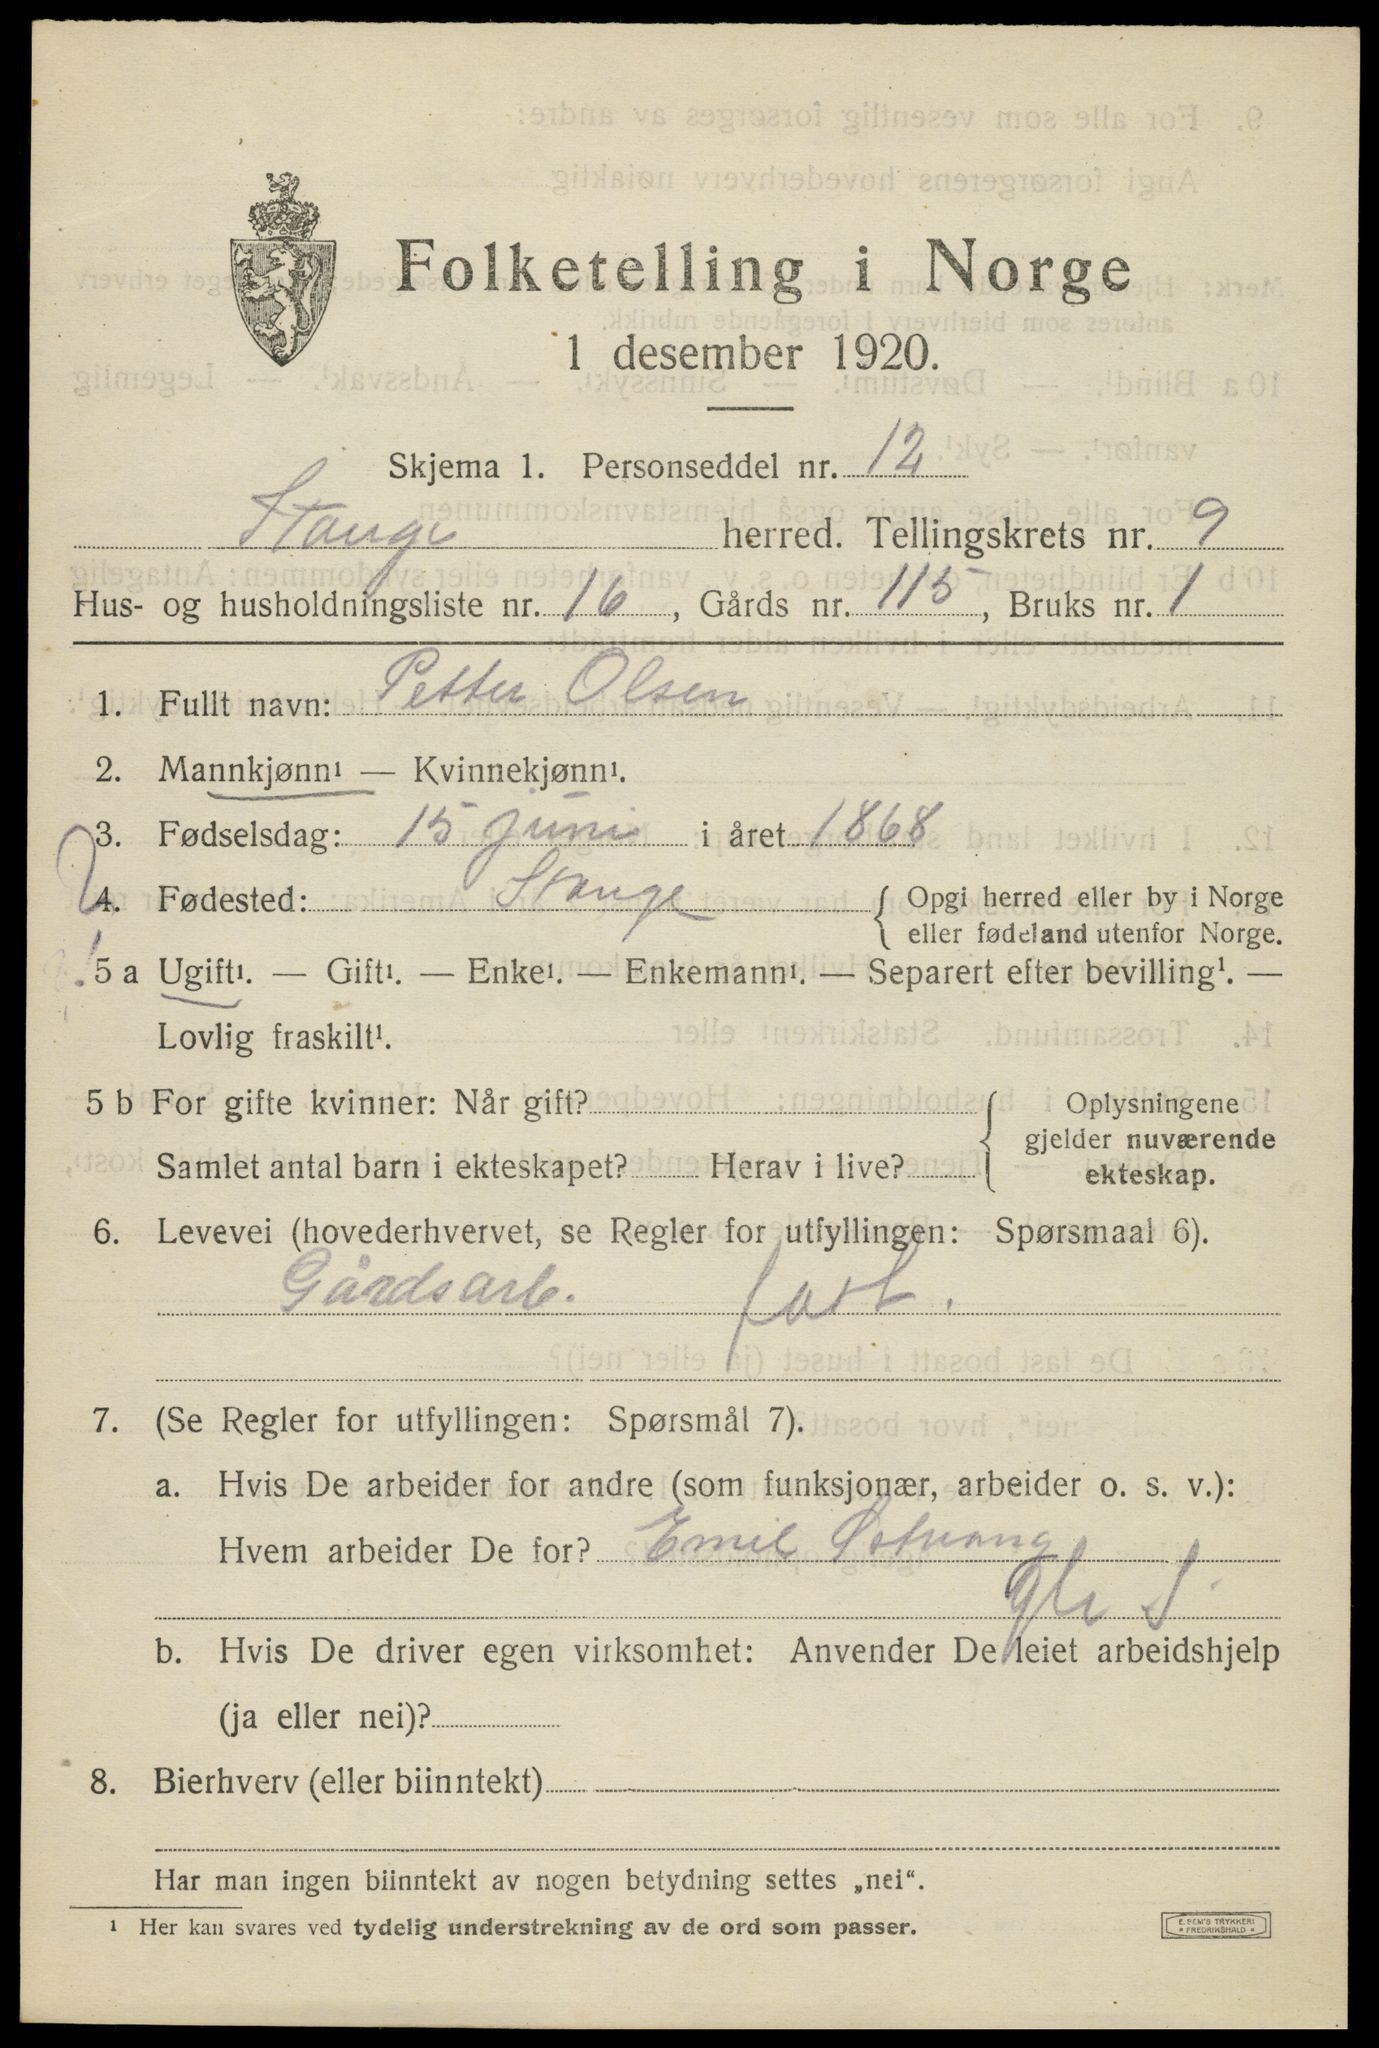 Folketelling i Norge
1 desember 1920.
Skjema 1. Personseddel nr. 12
Stange herred. Tellingskrets nr. 9
Hus- og husholdningsliste nr. 16, Gårds nr. 115, Bruks nr. 1
1. Fullt navn: Petter Olsen
2. Mannkjønn¹ — Kvinnekjønn¹.
3. Fødselsdag: 15 juni i året 1868
4. Fødested: Stange { Opgi herred eller by i Norge
eller fødeland utenfor Norge.
5 a Ugift¹. — Gift¹. — Enke¹. — Enkemann¹. — Separert efter bevilling¹. —
Lovlig fraskilt¹.
5 b For gifte kvinner: Når gift?
Samlet antal barn i ekteskapet? Herav i live?
{ Oplysningene
gjelder nuværende
ekteskap.
6. Levevei (hovederhvervet, se Regler for utfyllingen: Spørsmaal 6).
Gårdsarb. fast.
7. (Se Regler for utfyllingen: Spørsmål 7).
a. Hvis De arbeider for andre (som funksjonær, arbeider o. s. v.):
Hvem arbeider De for? Emil Østvang
b. Hvis De driver egen virksomhet: Anvender De leiet arbeidshjelp
(ja eller nei)?
8. Bierhverv (eller biinntekt)
Har man ingen biinntekt av nogen betydning settes „nei“.
¹ Her kan svares ved tydelig understrekning av de ord som passer.
E. SEM'S TRYKKERI
FREDRIKSHALD